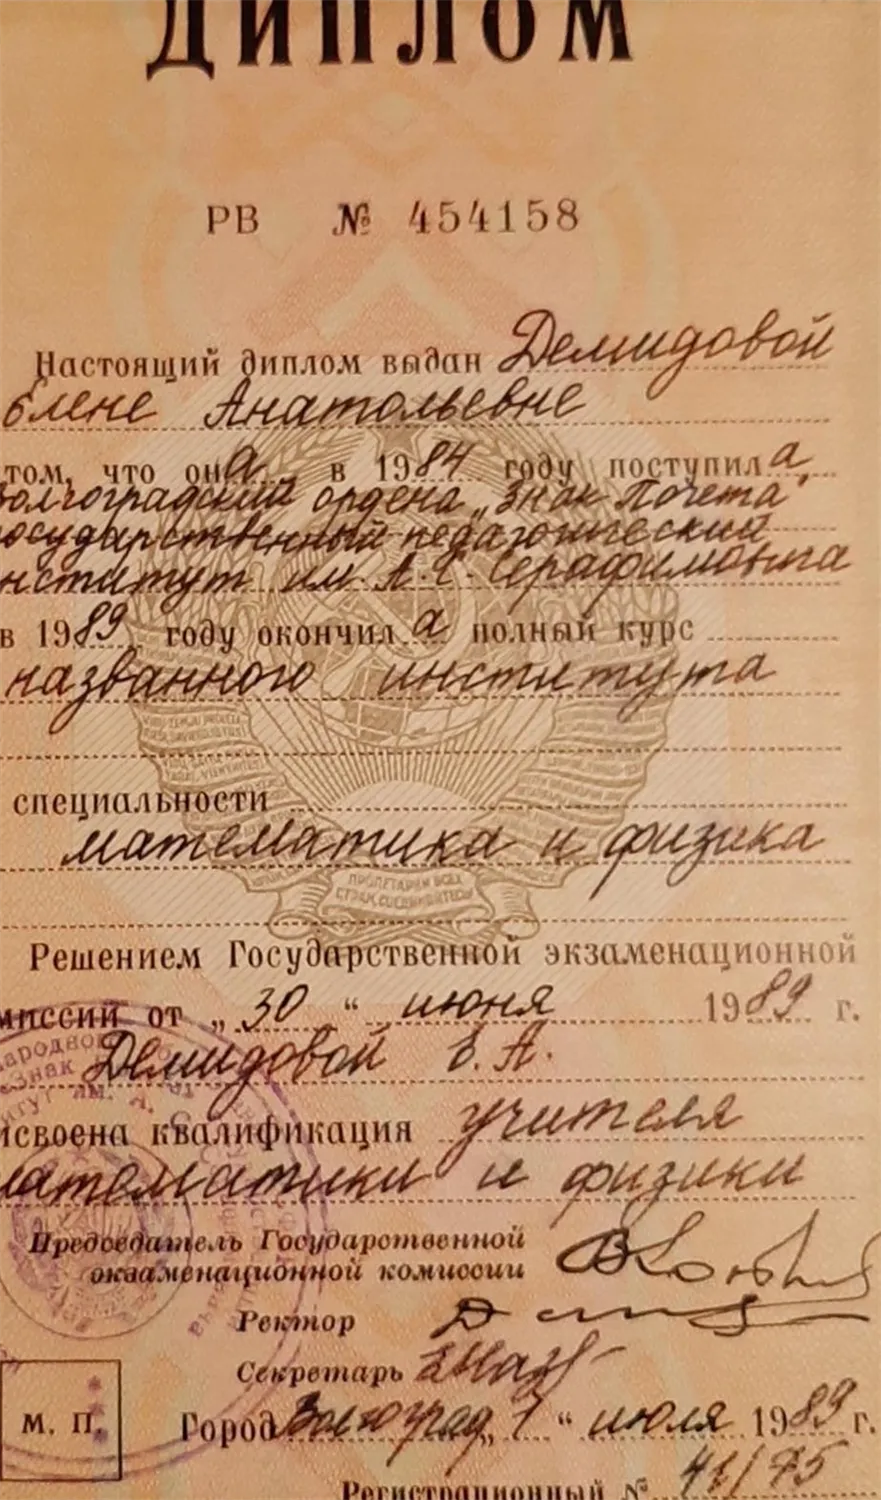 ДИПЛОМ
РВ № 454158
Настоящий диплом выдан Демидовой
Елене Анатольевне
том, что она в 1984 году поступила
волгоградский ордена „Знак Почета"
государственный педагогический
институт им. А. С. Серафимовича
в 1989 году окончила полный курс
названного института
специальности
математика и физика
Решением Государственной экзаменационной
миссии от „30" июня 1989 г.
Демидовой Е. А.
исвоена квалификация учителя
математики и физики
Председатель Государственной
экзаменационной комиссии
Ректор
Секретарь
М. П.
Город Волгоград „7" июля 1989 г.
Регистрационный № 41/75